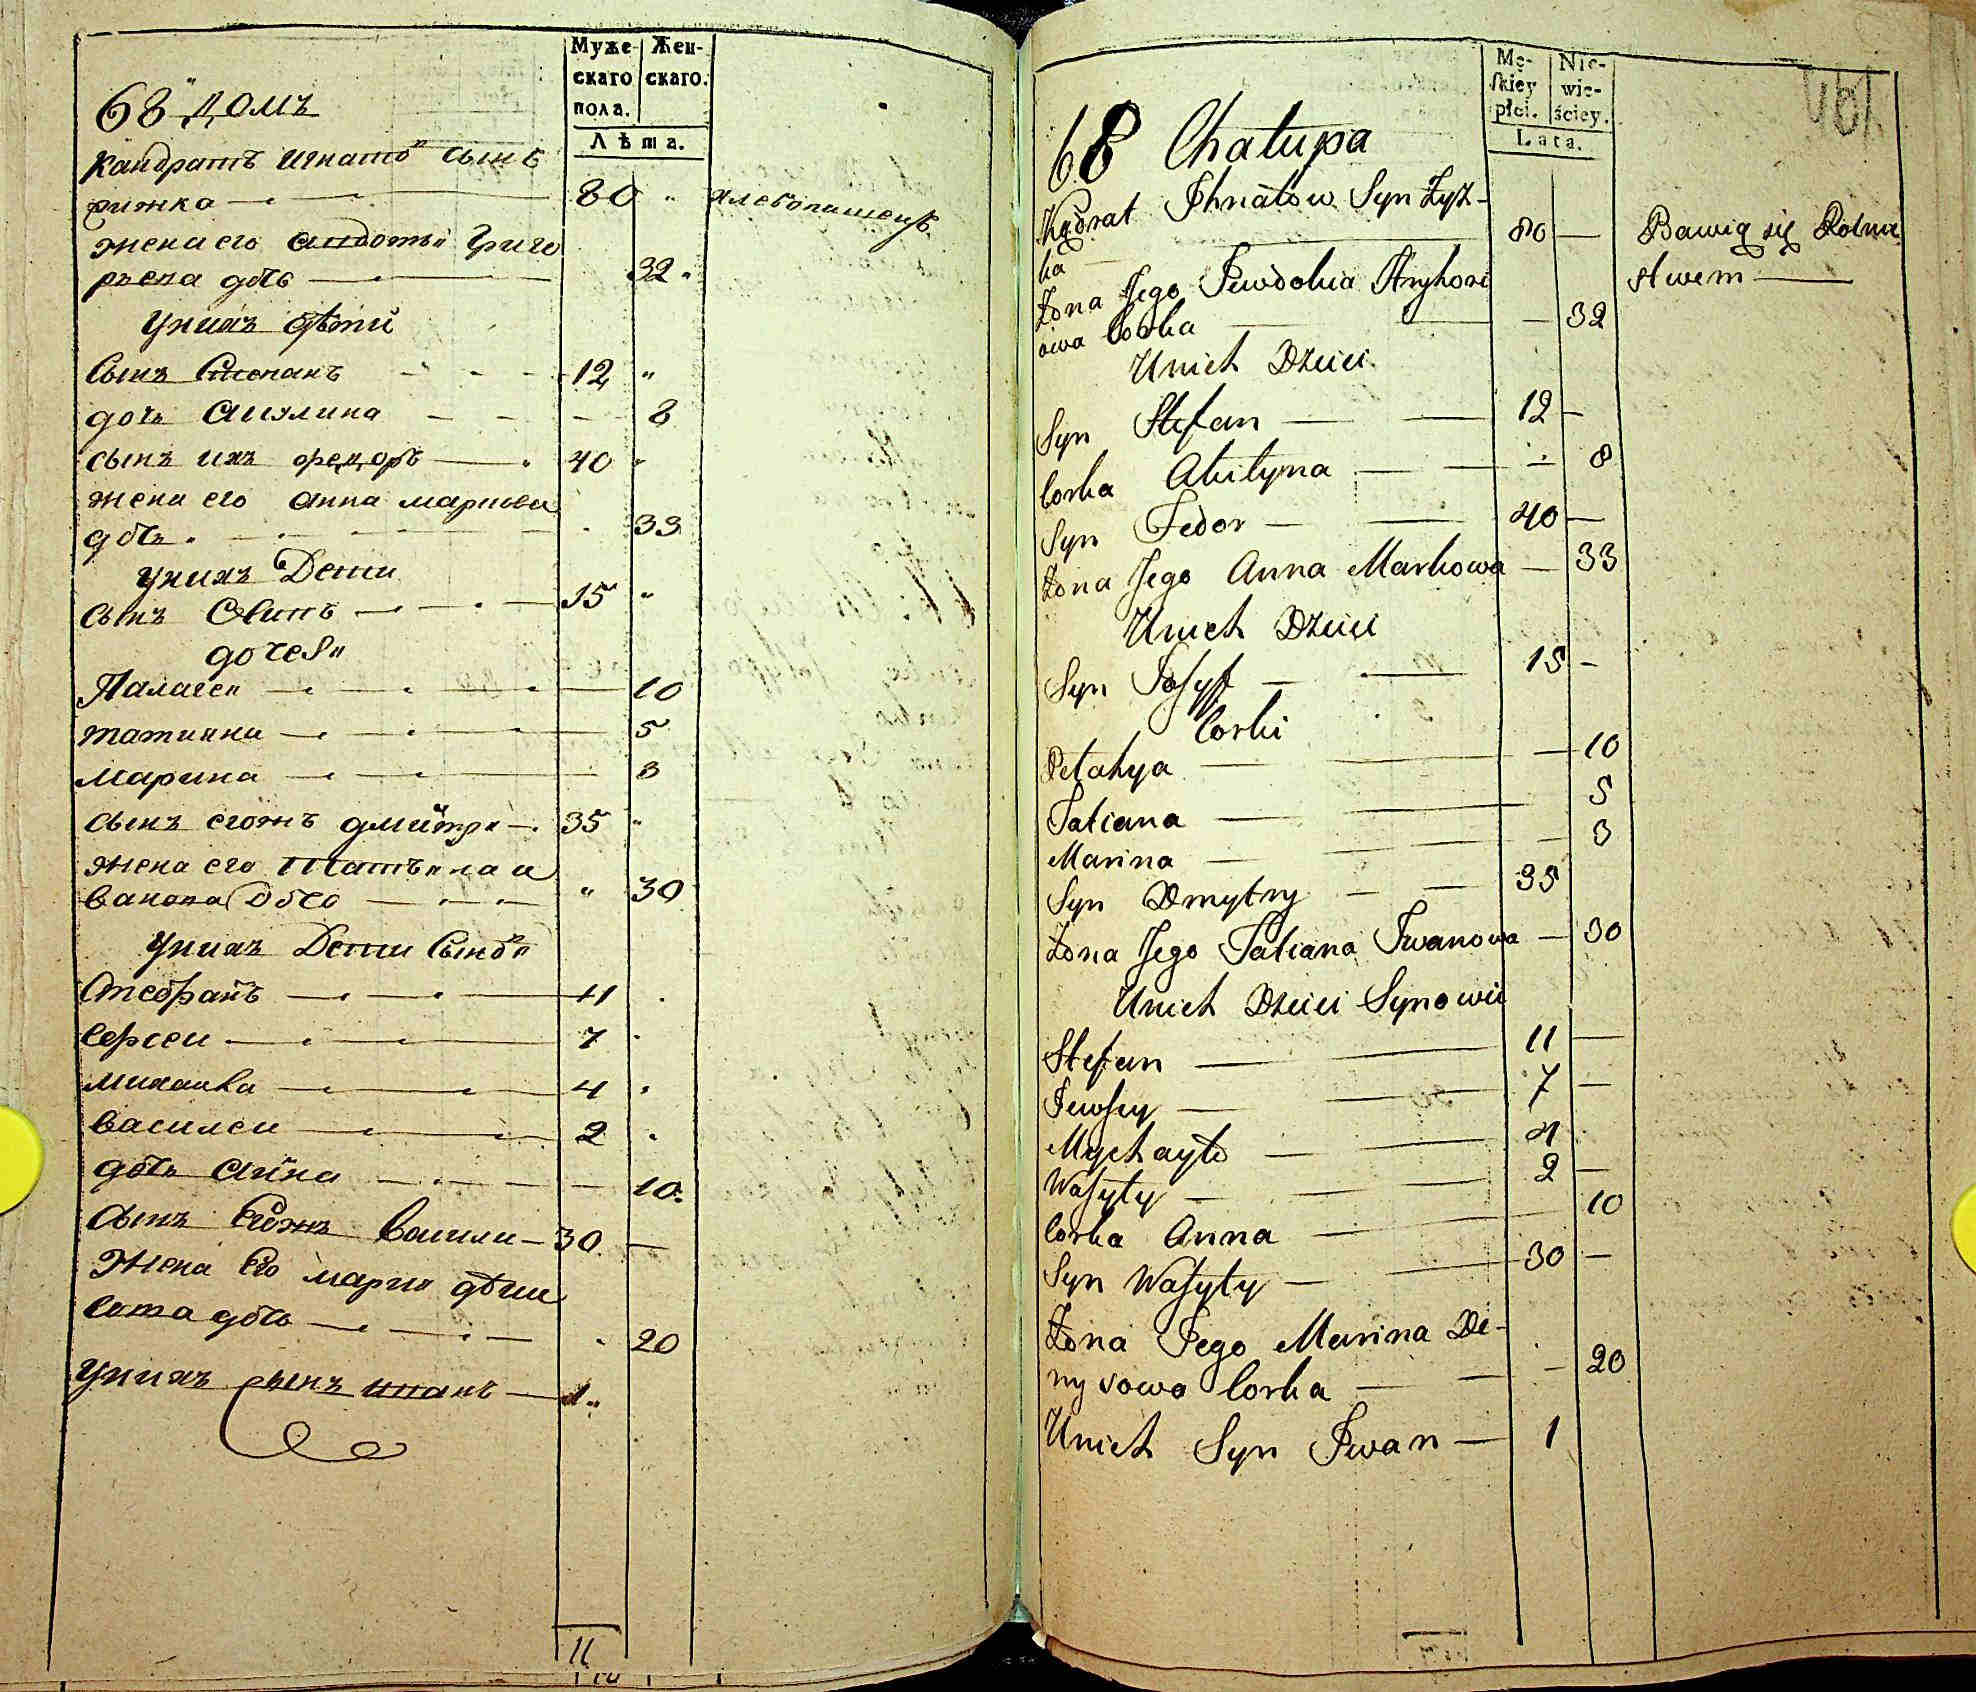 Муже-
скаго
пола.
Жен-
скаго.
Лѣта.
68 Домъ
Кандратъ Игнатов сынъ
рижка 80 хлебопашецъ
жена его Авдотья Григо
рьева дочь 32
У них дети
Сынъ Степанъ 12
дочь Акулина 8
сынъ ихъ Федоръ 40
жена его Анна Маркова
дочь 33
У нихъ Дети
Сынъ Осипъ 15
дочери
Палагея 10
Татияна 5
Марина 3
сынъ егожъ Дмитри 35
жена его Татьяна И
ванова дочь 30
У нихъ Дети Сыновя
Стефанъ 11
Евсеи 7
Михаила 4
Василеи 2
дочь Анна 10
Сынъ Егожъ Васили 30
Жена Его Мария Дени
сова дочь 20
У нихъ сынъ Иванъ 1
11
Mę-
skiey
płci.
Nie-
wie-
ściey.
Lata.
68 Chałupa
Kądrat Ihnatow Syn Łyż-
ka 80 Bawią się Rolni
ctwem
Żona Jego Jewdokia Hryhori
owa Corka 32
U nich Dzieci
Syn Stefan 12
Corka Akulyna 8
Syn Fedor 40
Żona Jego Anna Markowa 33
U nich Dzieci
Syn Josyf 15
Corki
Pelahya 10
Tatiana 5
Marina 3
Syn Dmytry 35
Żona Jego Tatiana Iwanowa 30
U nich Dzieci Synowie
Stefan 11
Jewsey 7
Mychayło 4
Wasyly 2
Corka Anna 10
Syn Wasyly 30
Żona Jego Marina De-
nysowa Corka 20
U nich Syn Iwan 1